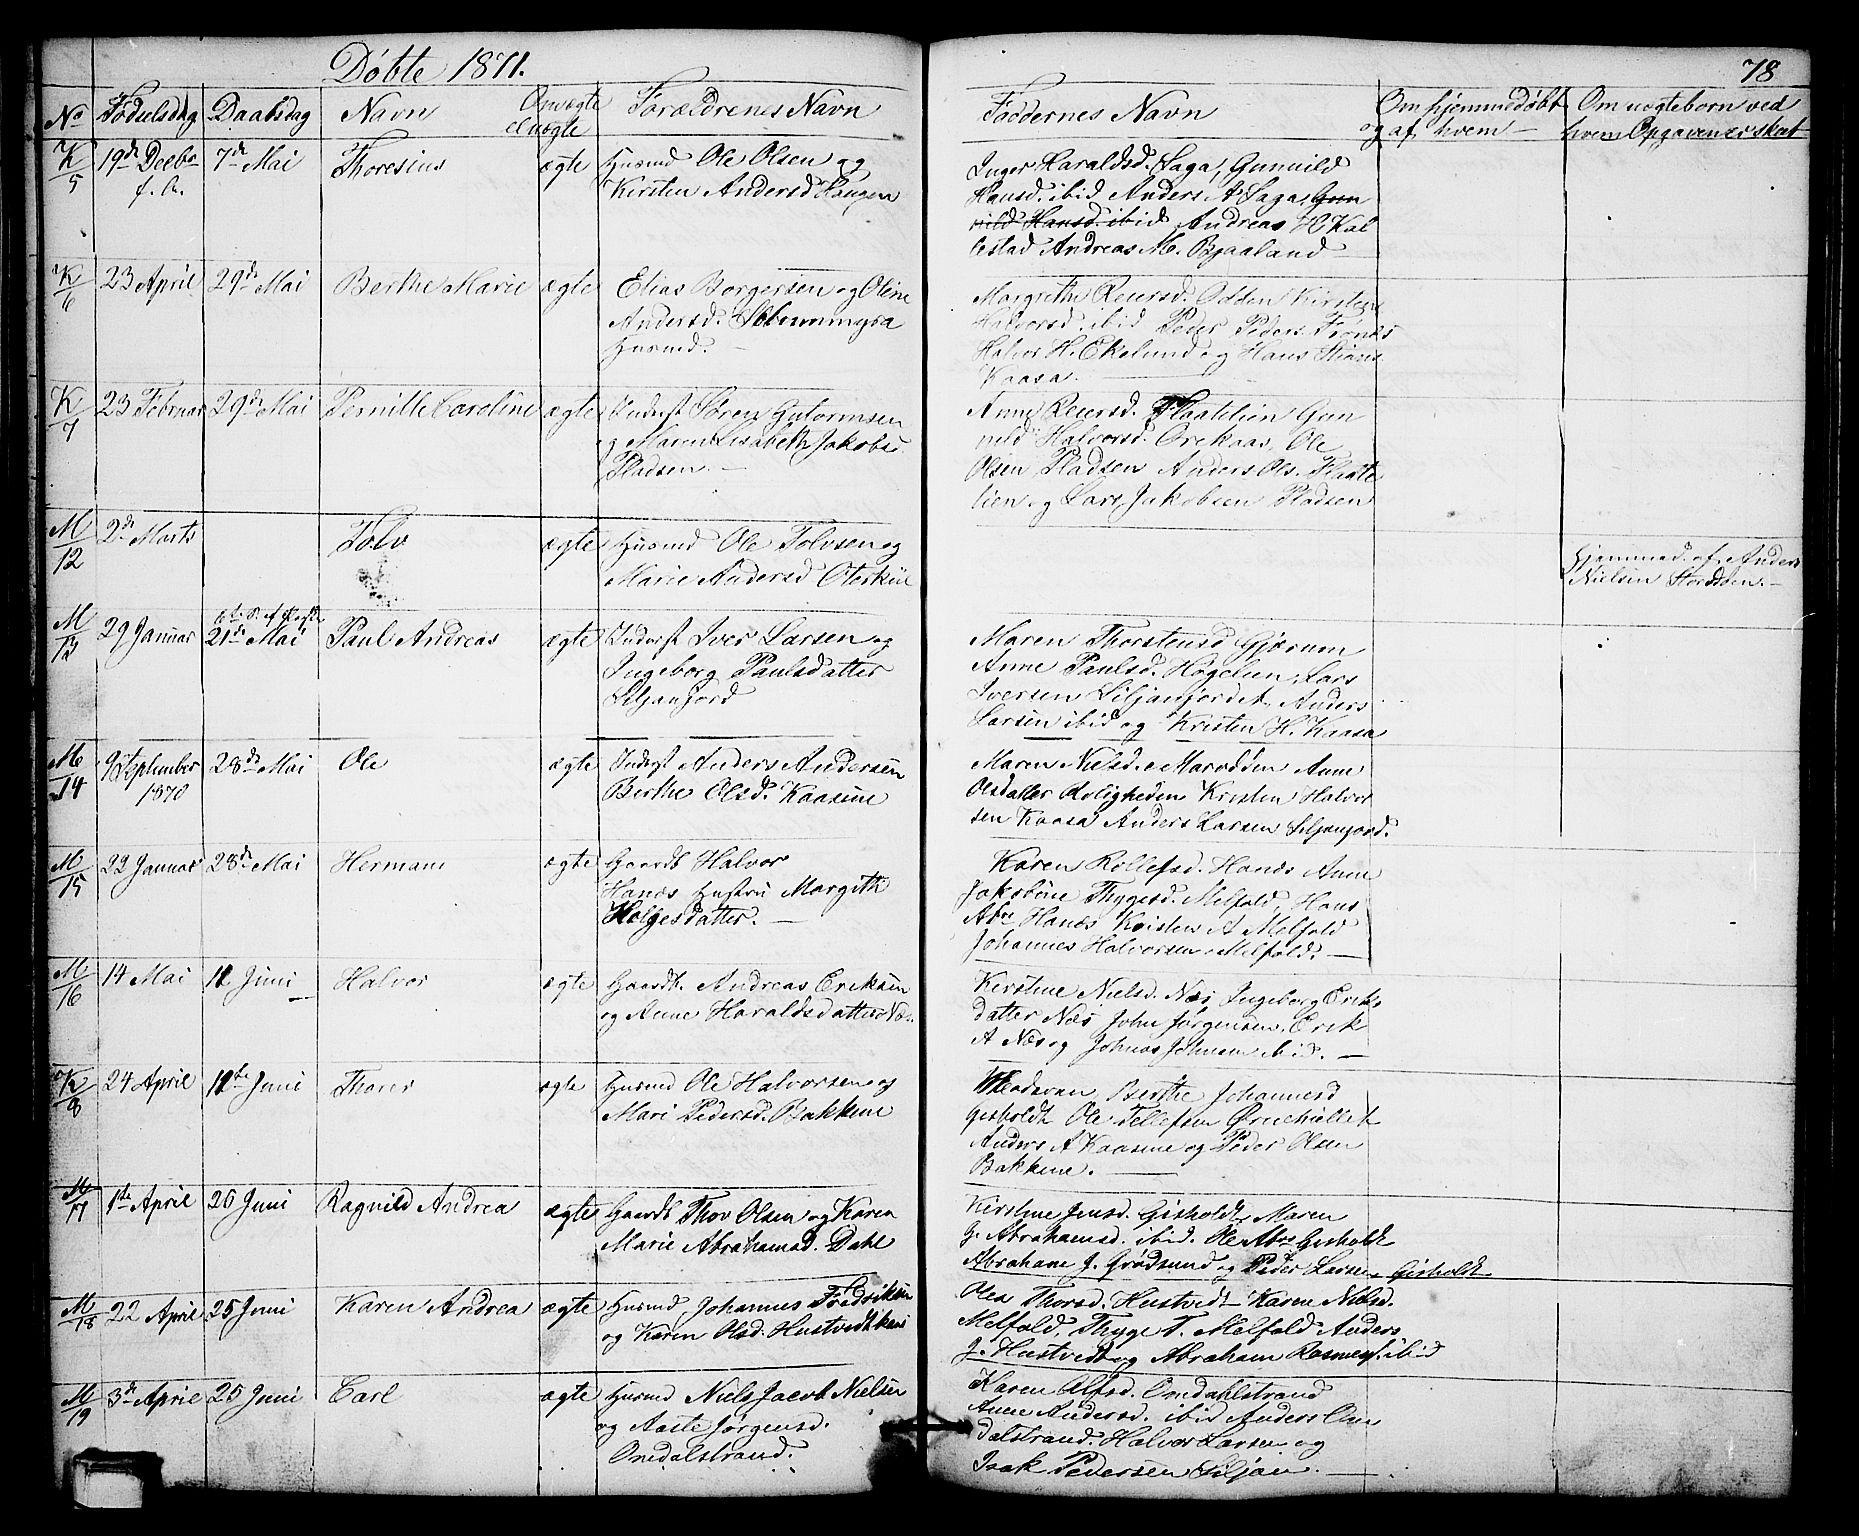 Døbte 1871.
78
No Fødselsdag Daabsdag Navn Om ægte el uægte Forældrenes Navn Faddernes Navn Om hjemmedøbt og af hvem Om uægteborn ved hvem Opgaven er skat
K/5 19de Decbr f. A. 7de Mai Thoresius ægte Husmd Ole Olsen og
Kirsten Andersd Haugen
Inger Haraldsd. Saga, Gunvild
Hansd. ibid Anders A Saga, Gun
vild Hansd. ibid Andreas H Kal
lestad Andreas M. Bjaaland
K/6 23 April 29de Mai Berthe Marie ægte Elias Borgersen og Oline
Andersd.
Husmd.
Margrethe Reiersd. Odden Kirstene
Halvorsd. ibid Peder Peders.
Halvor H. Ekelund og Hans
Kaasa.
K/7 23 Februar 29de Mai Pernille Caroline ægte Inderst Søren Gutormsen
og Maren Lisabeth Jakobs
Pladsen.
Anne Reiersd. Flaatelien Gun
nild Halvorsd. Orekaas, Ole
Olsen Pladsen Anders Ols. Flaate
lien og Lars Jakobsen Pladsen
M/12 2de Marts Tolv ægte Husmd Ole Tolvsen og
Marie Andersd Oterkiil
Hjemmed. af Anders
Nielsen
M/13 29 Januar 21de Mai Paul Andreas ægte Inderst Iver Larsen og
Ingeborg Paulsdatter
Siljanjord
Maren Thorstensd Gjerum
Anne Paulsd. Høgelien, Lars
Iversen Siljanjordet, Anders
Larsen ibid og Kristen H. Kaasa
M/14 9 September 1870 28de Mai Ole ægte Inderst Anders Andersen
Berthe Olsd. Kaasene
Maren Nielsd. Marodden Anne
Olsdatter Roligheden Kristen Halvor
sen Kaasa Anders Larsen Siljanjord.
M/15 22 Januar 28de Mai Hermann ægte Gaardb Halvor
Hanæs Hustru Margith
Helgesdatter.
Karen Rollefsd. Hanæs Anne
Jakobine Thygesd. Melfald, Hans
Abr. Hanæs Kristen A Melfald
Johannes Halvorsen Melfald.
M/16 14 Mai 11 Juni Halvor ægte Gaardb. Andreas Eriksen
og Anne Haraldsdatter Næs
Kirstine Nielsd. Næs Ingeborg Eriks
datter Næs John Jørgensen. Erik
A Næs og Johnas Johnsen ibid.
K/8 24 April 11te Juni Thorer ægte Husmd Ole Halvorsen og
Mari Pedersd. Bakkene
Berthe Johannesd
Gisholdt Ole Tellefsen
Anders A Kaasene og Peder Olsen
Bakkene.
M/17 1te April 26 Juni Ragnild Andrea ægte Gaardb Thov Olsen og Karen
Marie Abrahamsd. Dahl
Kirstine Jensd. Gisholdt Maren
G. Abrahamsd. ibid. Ole Abr. Gisholdt
Abraham J. Grødsund og Peder Larsen Gisholdt
M/18 22 April 25 Juni Karen Andrea ægte Husmd, Johannes Fredriksen
og Karen Olsd. Hustvedt
Olea Thorsd. Hustvedt Karen Nielsd.
Melfald, Thyge T. Melfald Anders
J. Hustvedt og Abraham Rasmus. ibid
M/19 3de April 25 Juni Carl ægte Husmd Niels Jacob Nielsen
og Aaste Jørgensd.
Omdalstrand.
Karen Alfsd. Omdahlstrand
Anne Andersd. ibid Anders Om
dalstrand. Halvor Larsen og
Isak Pedersen Siljan.